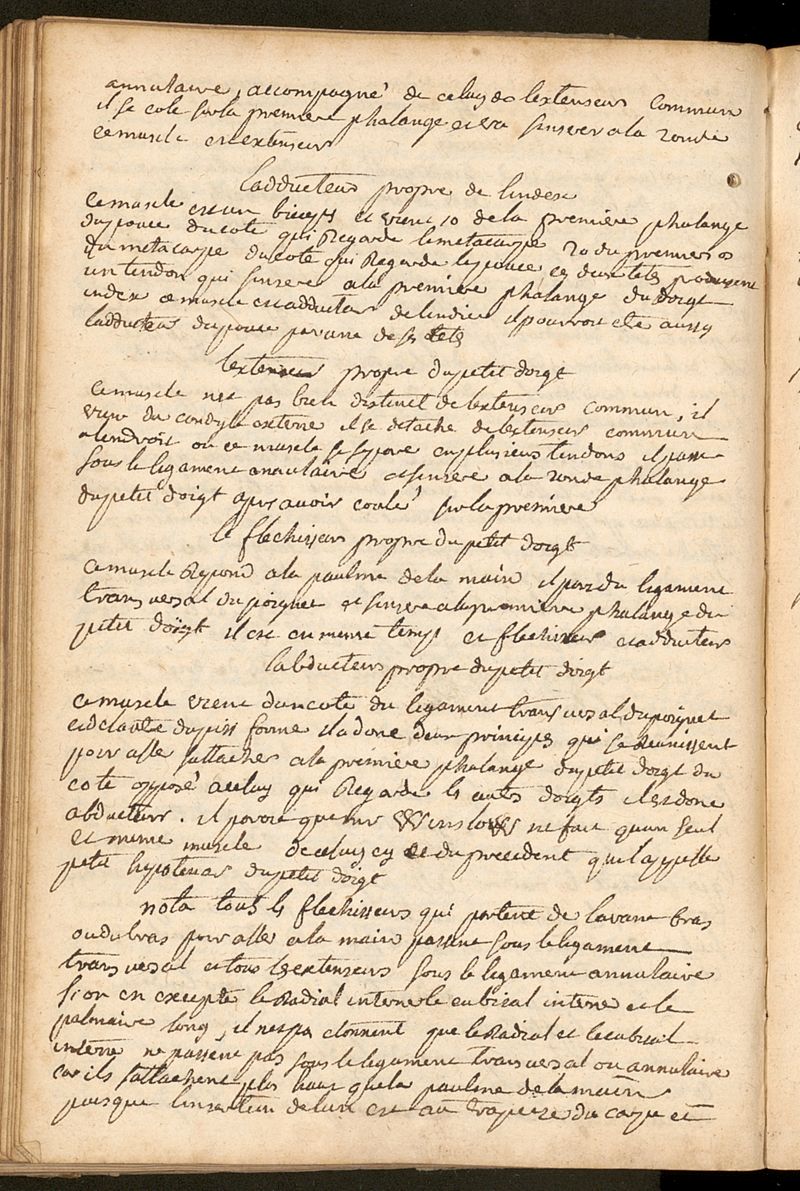 annulaire, accompagné de celuy de lextenseur commun
il se cole sur la premiere phalange et va sinserer a la 2onde
ce muscle est extenseur
Ladducteur propre de lindex
ce muscle est un biceps et vient 1o de la premiere phalange
du pouce du coté qui Regarde le metacarpe 2o du premier os
du metacarpe du coté qui Regarde le pouce ces deux tetes produisent
un tendon qui sinsere a la premiere phalange du doigt
index ce muscle est adducteur de lindice il pourroit etre aussy
ladducteur du pouce par une de ses tetes
lextenseur propre du petit doigt
ce muscle nest pas bien distinct de lextenseur commun, il
vient du condyle externe il se detache de lextenseur commun
a lendroit ou ce muscle se separe en plusieurs tendons il passe
sous le ligament annulaire et sinsere a la 2onde phalange
du petit doigt apres avoir coulé sur la premiere
le flechisseur propre du petit doigt
ce muscle Repond a la paulme de la main il part du ligament
transversal du poignet et sinsere a la premiere phalange du
petit doigt il est en meme temps et flechisseur et adducteur
labducteur propre du petit doigt
ce muscle vient dun coté du ligament transversal du poignet
et de lautre du pisi forme il a donc deux principes qui se Reunissent
pour aller sattacher a la premiere phalange du petit doigt du
coté opposé a celuy qui Regarde les autres doigts il est donc
abducteur. il paroit que mr Winslows ne fait quun seul
et meme muscle de celuy cy et du precedent quil appelle
petit hypotenar du petit doigt
nota tous les flechisseurs qui partent de lavant bras
ou du bras pour aller a la main passent sous le ligament
transversal et tous les extenseurs sous le ligament annulaire
si on en excepte le Radial interne le cubital interne et le
palmaire long, il nest pas etonnent que le Radial et le cubital
interne ne passent pas sous le ligament transversal ou annulaire
car ils sattachent plus haut que la paulme de la main
puisque linsertion de lun est au trapeze du carpe et